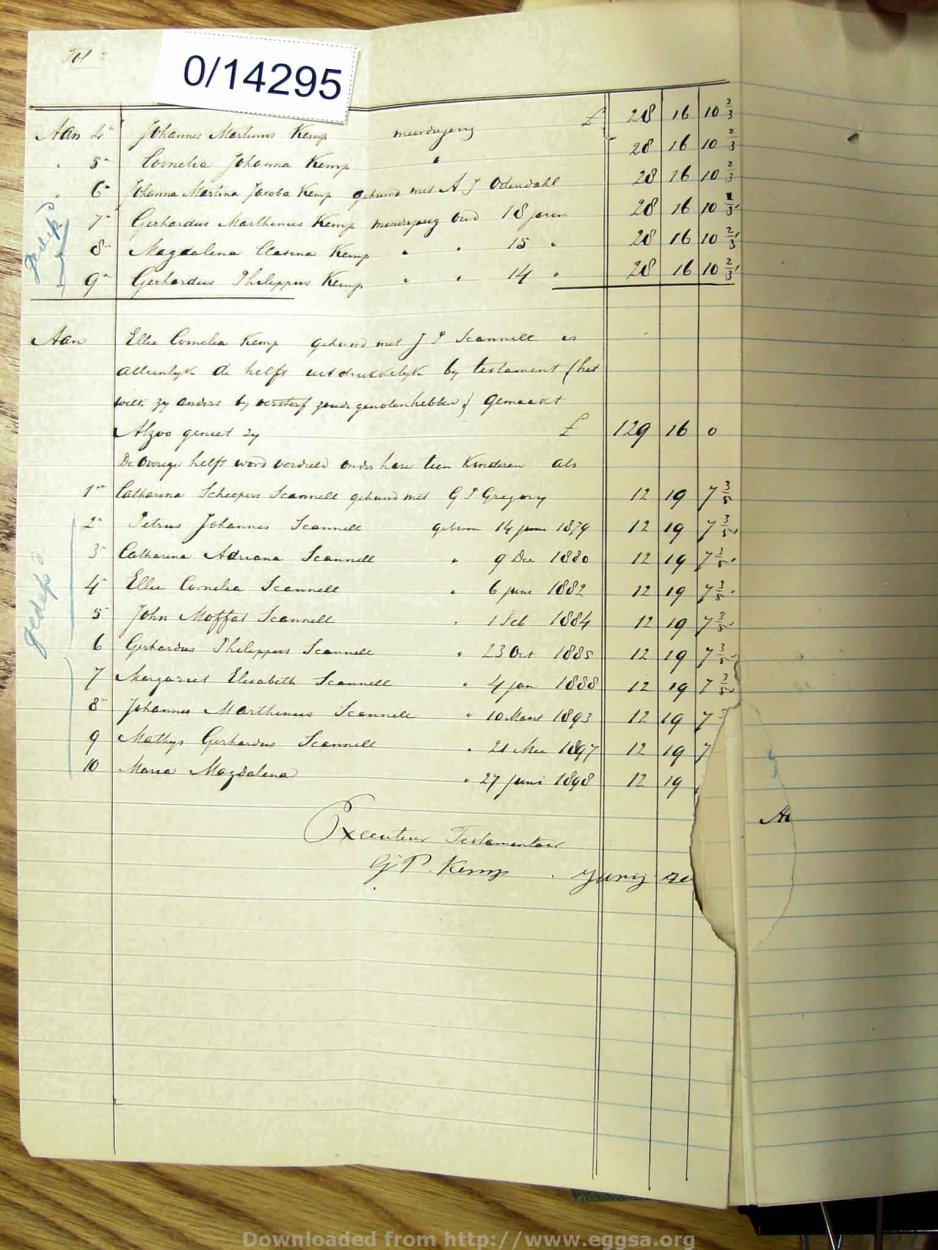 Fol 2
0/14295
Aan 4e Johannes Martinus Kemp meerderjarig £ 28 16 10 2/3
" 5e Cornelia Johanna Kemp " 28 16 10 2/3
" 6e Johanna Martina Jacoba Kemp gehuwd met A J Odendahl 28 16 10 2/3
7e Gerhardus Marthinus Kemp minderjarig oud 18 jaren 28 16 10 2/3
8e Magdalena Clasina Kemp " " 15 " 28 16 10 2/3
9e Gerhardus Philippus Kemp " " 14 " 28 16 10 2/3
gedep'd
Aan Ellie Cornelia Kemp gehuwd met J P Scannell is
alleenlyk de helft uitdrukkelyk by testament (het
welk zy anders by versterf zoude genoten hebben) gemaakt
Alzoo geniet zy £ 129 16 0
De Overige helft word verdeeld onder hare tien Kinderen als
1e Catharina Scheepers Scannell gehuwd met G J Gregory 12 19 7 3/5
2e Petrus Johannes Scannell geboren 14 1879 12 19 7 3/5
3e Catharina Adriana Scannell " 9 Dec 1880 12 19 7 3/5
4e Ellie Cornelia Scannell " 6 juni 1882 12 19 7 3/5
5 John Moffat Scannell " 1 Feb 1884 12 19 7 3/5
6 Gerhardus Philippus Scannell " 23 Oct 1885 12 19 7 3/5
7 Margaret Elisabeth Scannell " 4 jan 1888 12 19 7 3/5
8 Johannes Marthinus Scannell " 10 Maart 1893 12 19 7 3
9 Mathys Gerhardus Scannell " 21 Mei 1897 12 19 7
10 Maria Magdalena " 27 juni 1898 12 19
gedep'd
Executeur Testamentair
G P. Kemp
Downloaded from http://www.eggsa.org